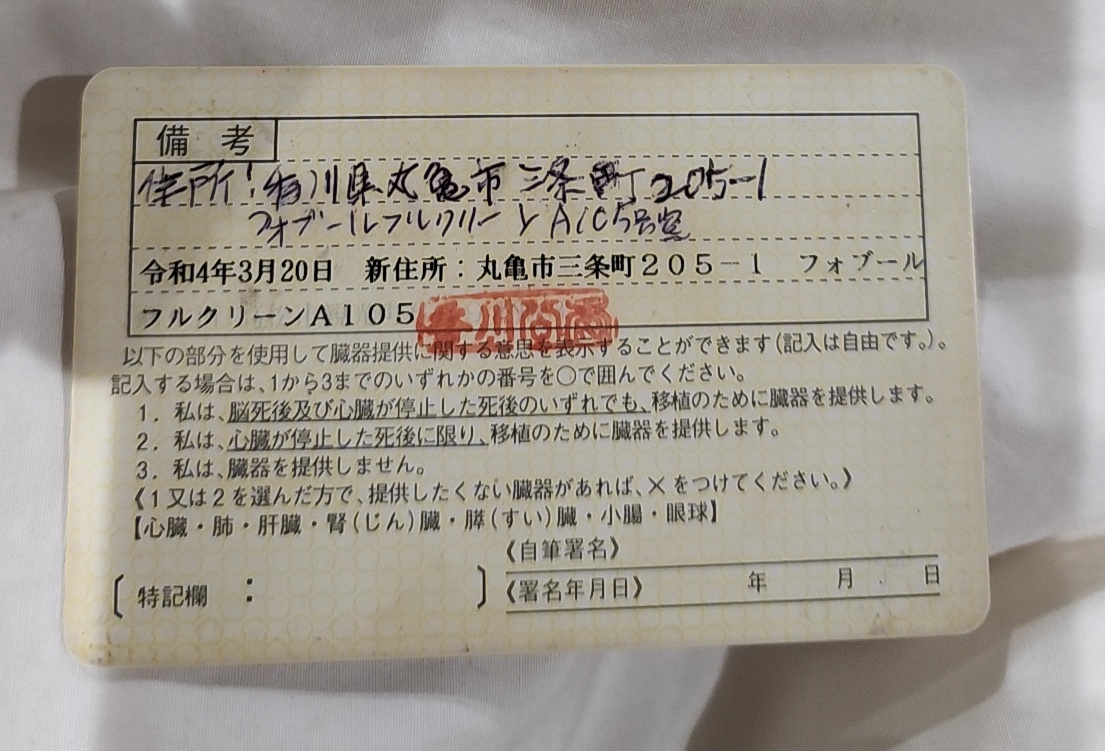 備考
住所:香川県丸亀市三条町205-1
フォブールフルクリーンA105号室
令和4年3月20日 新住所:丸亀市三条町205-1 フォブール
フルクリーンA105
香川公委
以下の部分を使用して臓器提供に関する意思を表示することができます(記入は自由です。)。
記入する場合は、1から3までのいずれかの番号を〇で囲んでください。
1. 私は、脳死後及び心臓が停止した死後のいずれでも、移植のために臓器を提供します。
2. 私は、心臓が停止した死後に限り、移植のために臓器を提供します。
3. 私は、臓器を提供しません。
《1又は2を選んだ方で、提供したくない臓器があれば、×をつけてください。》
【心臓・肺・肝臓・腎(じん)臓・膵(すい)臓・小腸・眼球】
《自筆署名》
〔特記欄: 〕
《署名年月日》 年 月 日